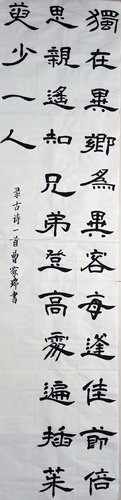 獨在異鄉為異客每逢佳節倍
思親遙知兄弟登高處遍插茱
萸少一人
录古诗一首曾家瑞書